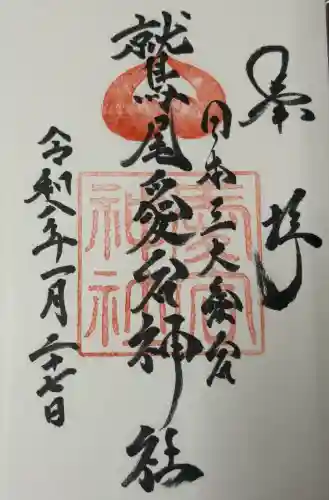 奉拝
日本三大愛宕
鷲尾愛宕神社
令和八年一月二十七日
愛宕神社